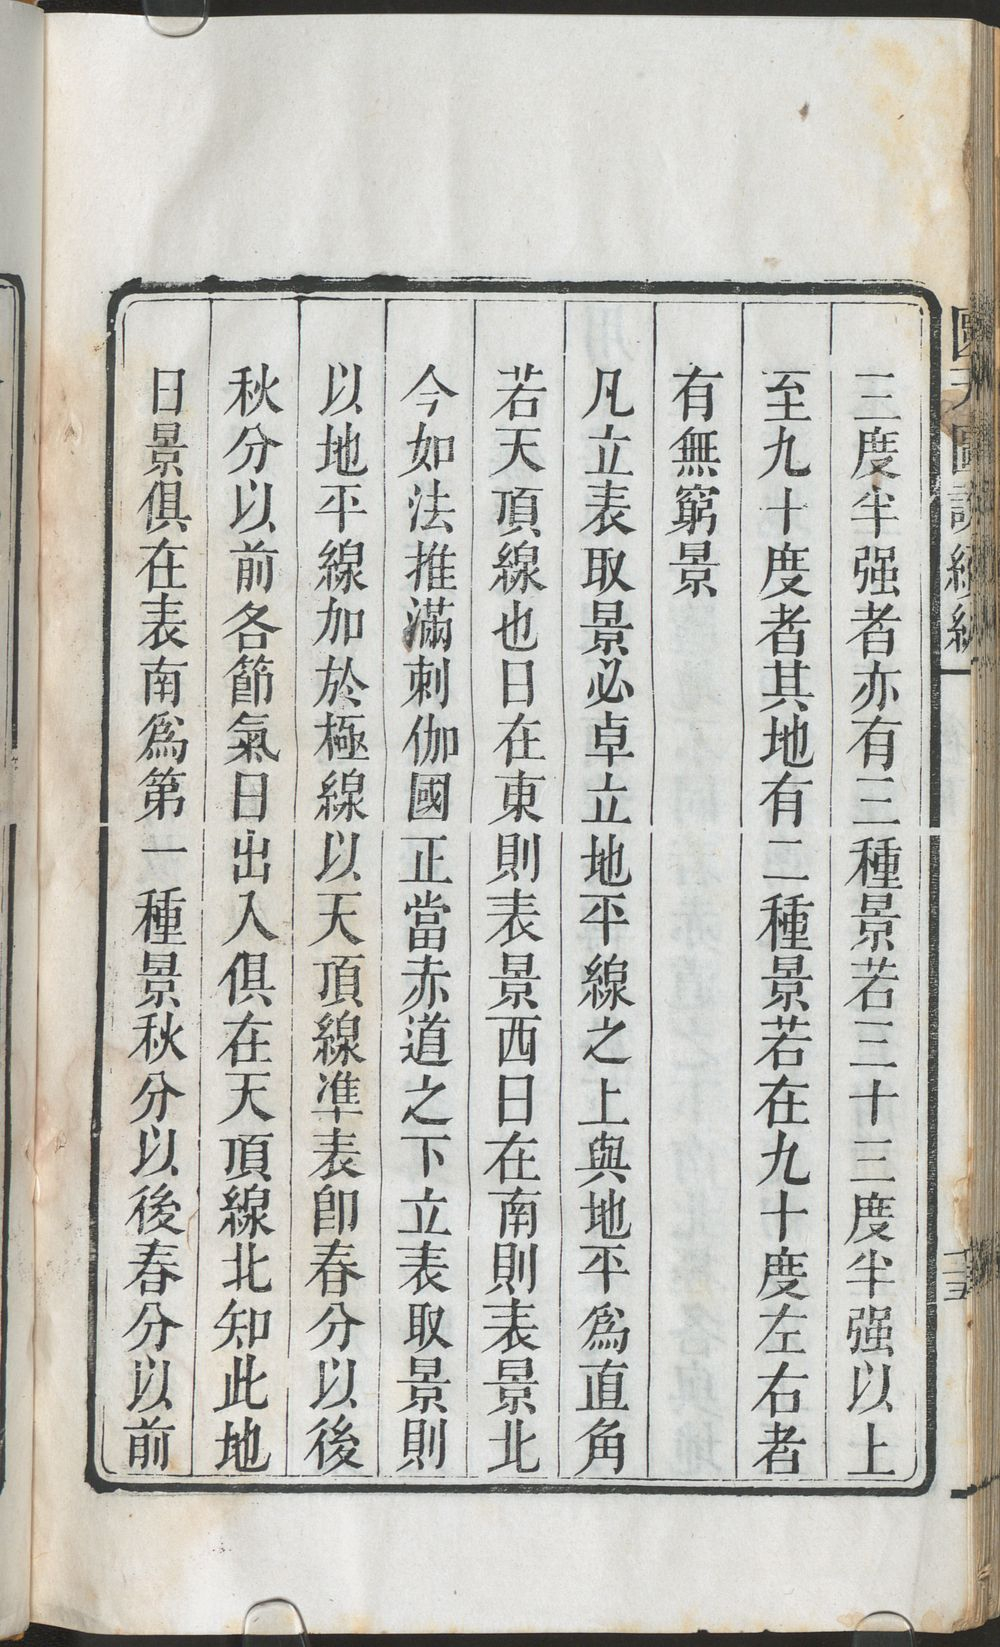 三度半强者亦有三種景若三十三度半强以上
至九十度者其地有二種景若在九十度左右者
有無窮景
凡立表取景必卓立地平線之上與地平爲直角
若天頂線也日在東則表景西日在南則表景北
今如法推滿刺伽國正當赤道之下立表取景則
以地平線加於極線以天頂線準表卽春分以後
秋分以前各節氣日出入俱在天頂線北知此地
日景俱在表南爲第一種景秋分以後春分以前